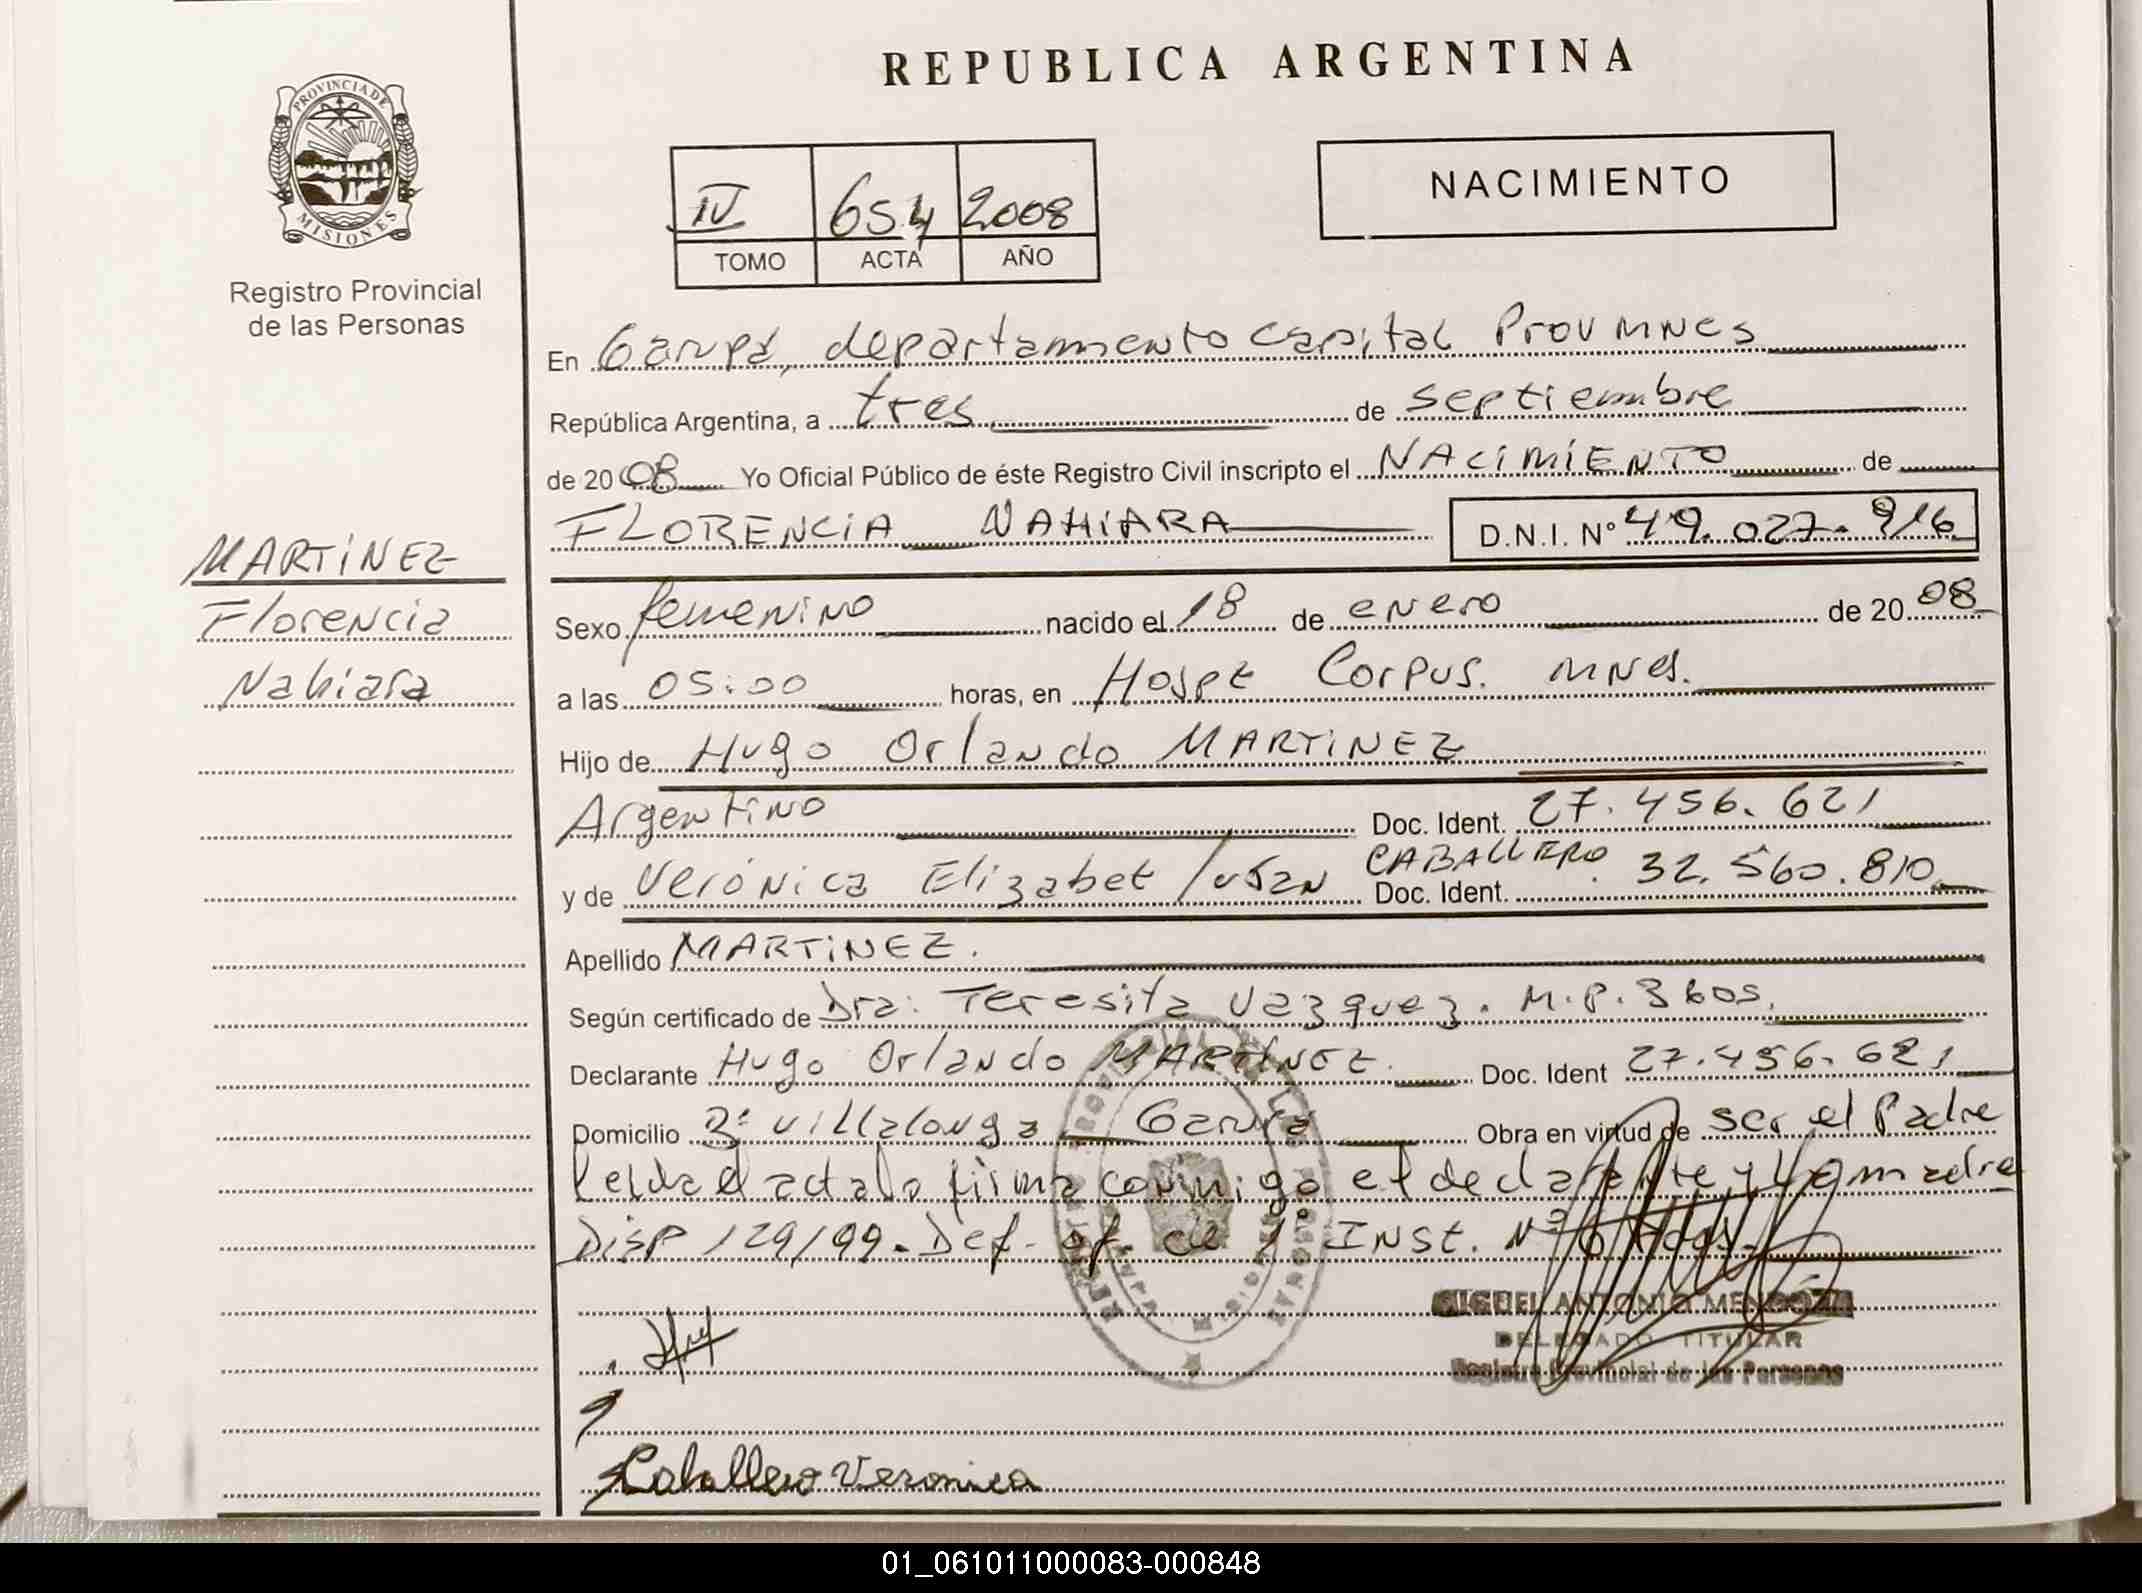 REPUBLICA ARGENTINA
PROVINCIA DE
MISIONES
Registro Provincial
de las Personas
IV 654 2008
TOMO ACTA AÑO
NACIMIENTO
En Garupá, departamento Capital Prov Mnes
República Argentina, a tres de septiembre
de 2008 Yo Oficial Público de éste Registro Civil inscripto el NACIMIENTO de
FLORENCIA NAHIARA D.N.I. Nº 49.027.916
MARTINEZ
Florencia
Nahiara
Sexo femenino nacido el 18 de enero de 20 08
a las 05:00 horas, en Hospt Corpus. Mnes.
Hijo de Hugo Orlando MARTINEZ
Argentino Doc. Ident. 27.456.621
y de Verónica Elizabet CABALLERO Doc. Ident. 32.560.810
Apellido MARTINEZ.
Según certificado de Dra: Teresita Vazquez. M.P. 3605.
Declarante Hugo Orlando MARTINEZ. Doc. Ident 27.456.621
Domicilio Bº Villalonga Garupá Obra en virtud de ser el Padre
Leida el acta la firma conmigo el declarante y la madre
Disp 129/99. Def. of. de 1º Inst. Nº 6
MIGUEL ANTONIO MENDOZA
DELEGADO TITULAR
Registro Provincial de las Personas
Caballero Veronica
01_061011000083-000848